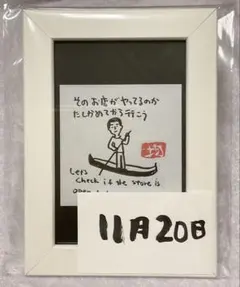 そのお店がやってるのか
たしかめてから行こう
Let's
check if the store is
open
11月20日